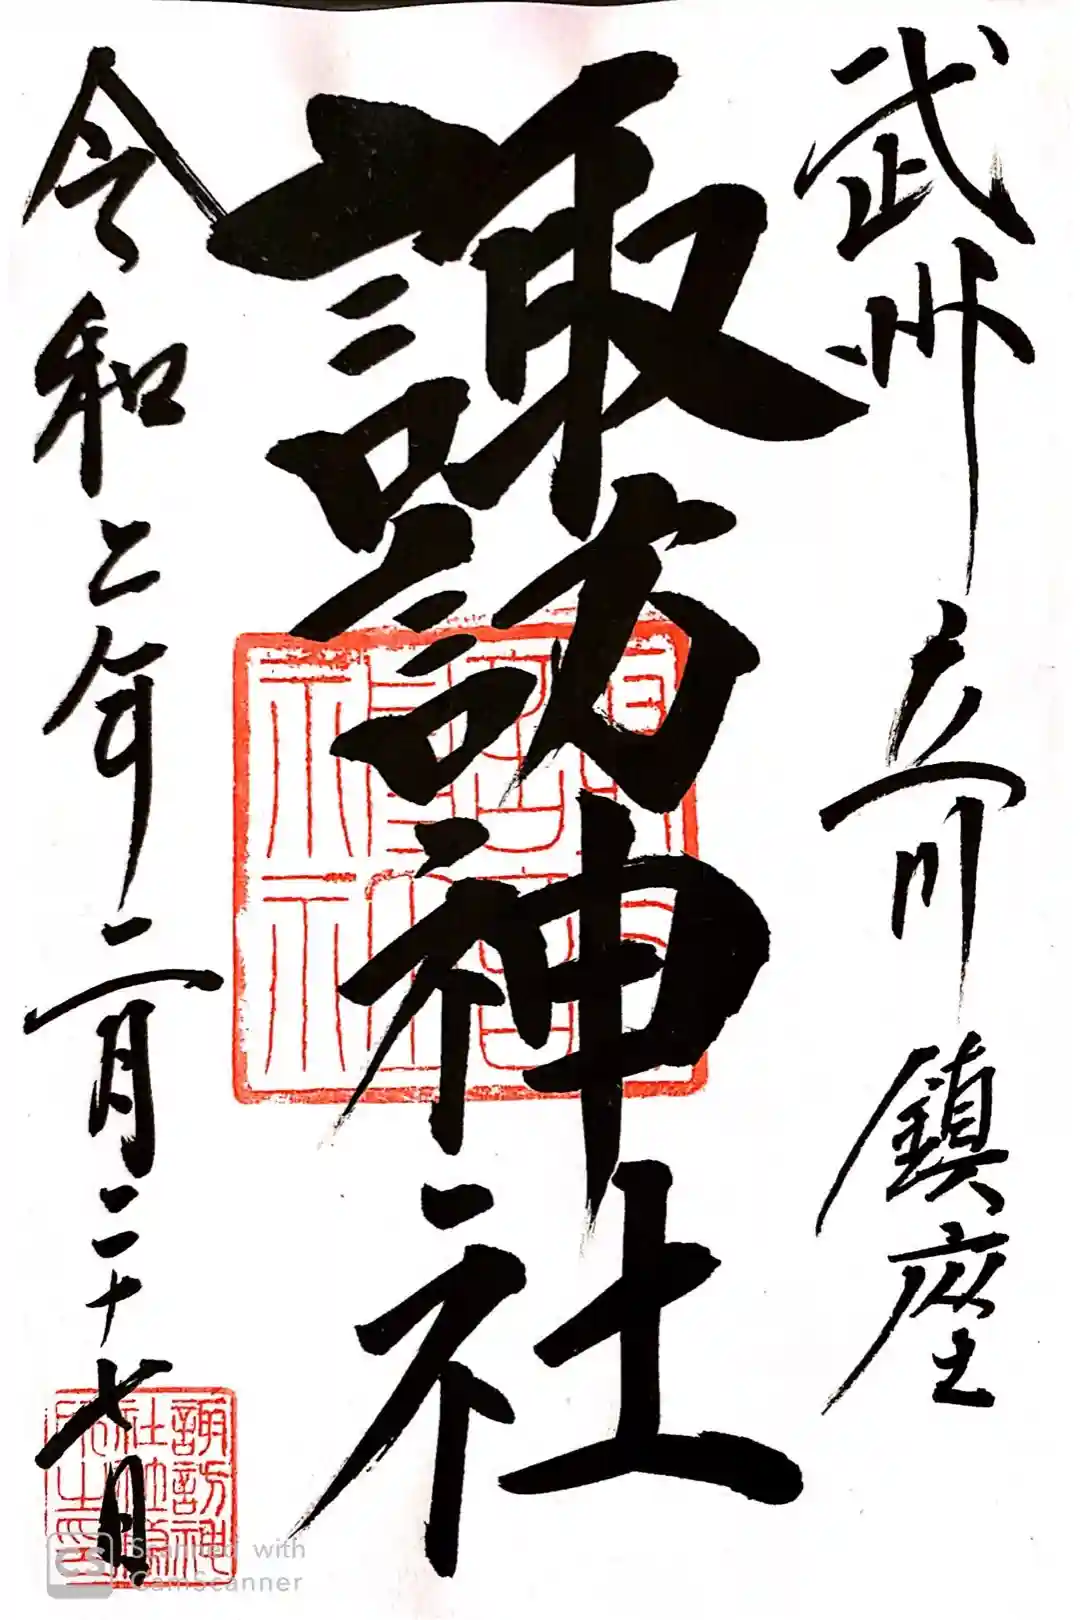 武州立川鎮座
諏訪神社
令和二年二月二十七日
諏訪神
社
之印
Scanned with
CamScanner